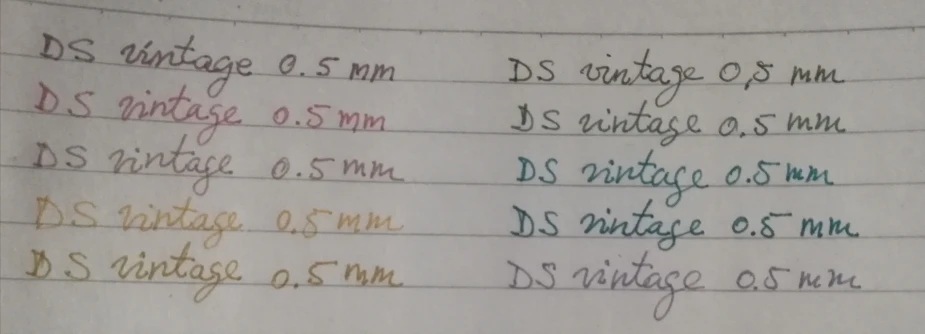 DS vintage 0.5 mm
DS vintage 0.5 mm
DS vintage 0.5 mm
DS vintage 0.5 mm
DS vintage 0.5 mm
DS vintage 0,5 mm
DS vintage 0.5 mm
DS vintage 0.5 mm
DS vintage 0.5 mm
DS vintage 0.5 mm